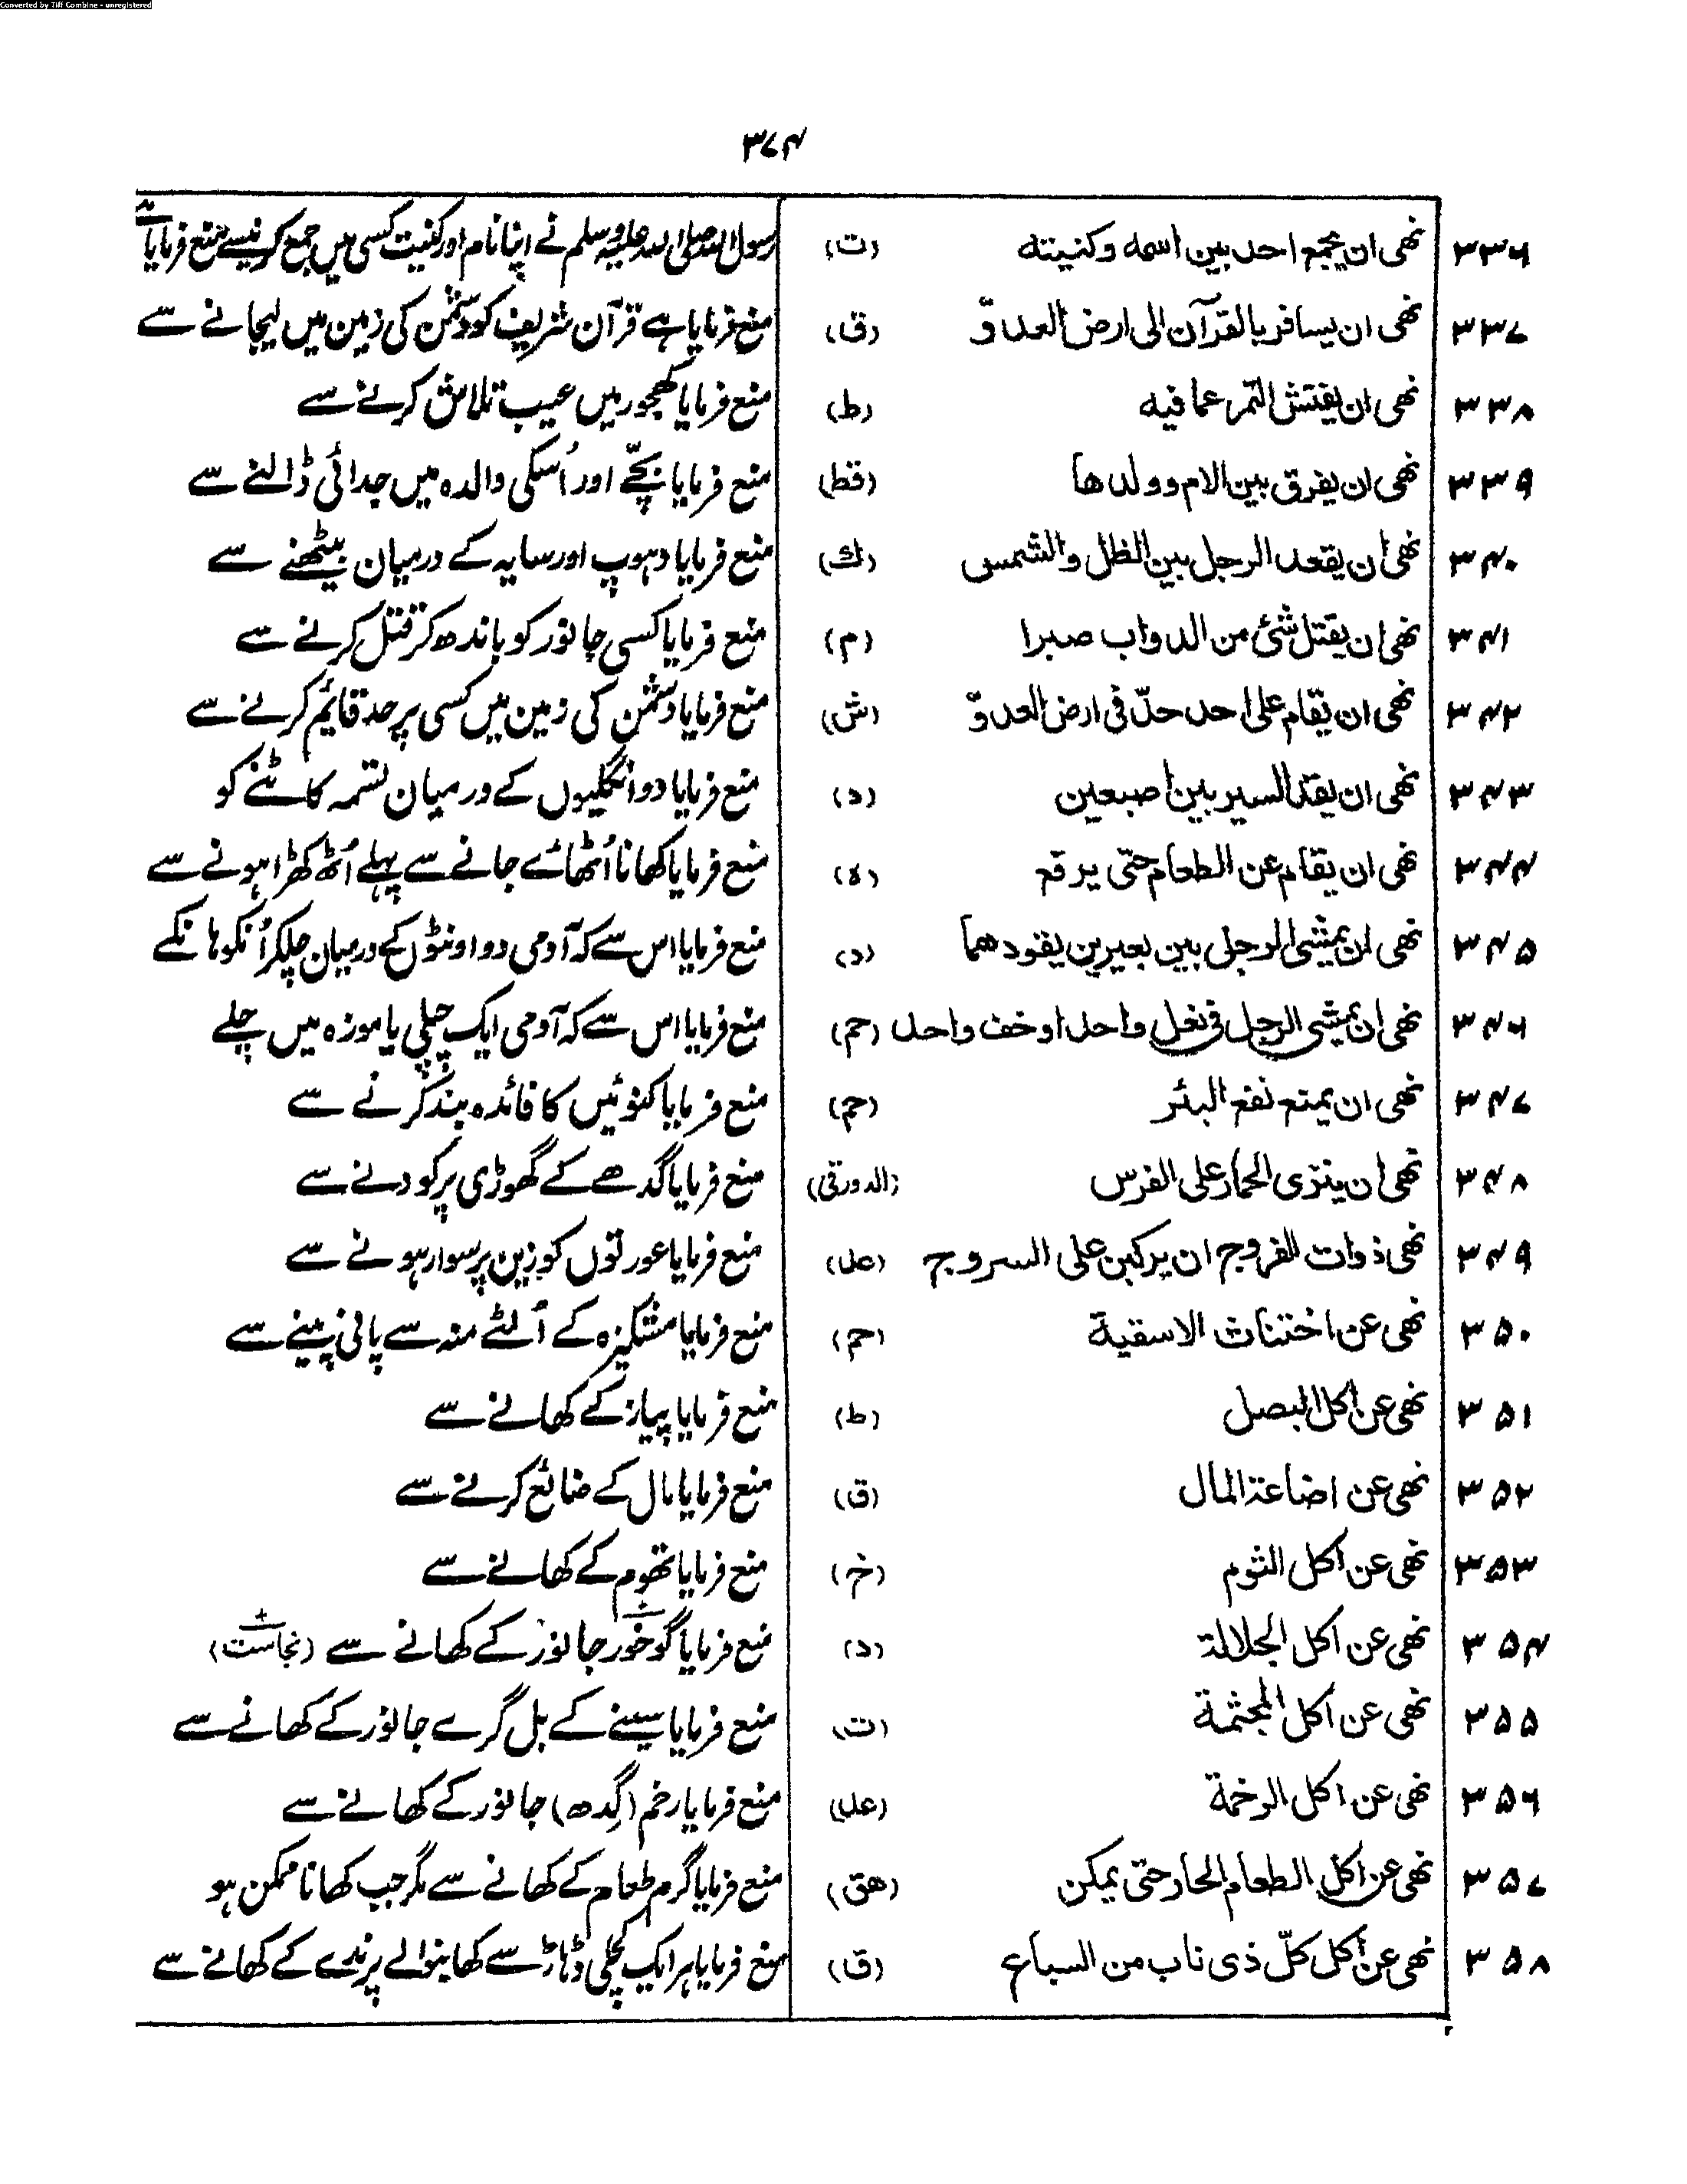 Converted by Tiff Combine - unregistered
۳۷۴
۳۳۶ نھی ان یجمع احد بین اسمہ وکنیتہ (ت) رسول اللہ صلی اللہ علیہ وسلم نے اپنا نام اور کنیت کسی میں جمع کرنیسے منع فرمایا ہے
۳۳۷ نھی ان یسافر بالقرآن الی ارض العدوّ (ق) منع فرمایا ہے قرآن شریف کو دشمن کی زمین میں لیجانے سے
۳۳۸ نھی ان یفتش التمر عما فیہ (ط) منع فرمایا کھجور میں عیب تلاش کرنے سے
۳۳۹ نھی ان یفرق بین الام وولدھا (قط) منع فرمایا بچّے اور اُسکی والدہ میں جدائی ڈالنے سے
۳۴۰ نھی ان یقعد الرجل بین الظل والشمس (ك) منع فرمایا دہوپ اور سایہ کے درمیان بیٹھنے سے
۳۴۱ نھی ان یقتل شئ من الدواب صبرا (م) منع فرمایا کسی جانور کو باندھ کر قتل کرنے سے
۳۴۲ نھی ان یقام علی احد حدّ فی ارض العدوّ (ش) منع فرمایا دشمن کی زمین میں کسی پر حد قائیم کرنے سے
۳۴۳ نھی ان یقد السیر بین اصبعین (د) منع فرمایا دو انگلیوں کے درمیان تسمہ کاٹنے کو
۳۴۴ نھی ان یقام عن الطعام حتّی یرفع (ہ) منع فرمایا کھانا اُٹھائے جانے سے پہلے اُٹھ کھڑا ہونے سے
۳۴۵ نھی ان یمشی الرجل بین بعیرین یقودھما (د) منع فرمایا اس سے کہ آدمی دو اونٹوں کے درمیان چلکر اُنکو ہانکے
۳۴۶ نھی ان یمشی الرجل فی نعل واحد او خف واحد (حم) منع فرمایا اس سے کہ آدمی ایک چپلی یا موزہ میں چلے
۳۴۷ نھی ان یمنع نفع البئر (حم) منع فرمایا کنوئیں کا فائدہ بند کرنے سے
۳۴۸ نھی ان ینزی الحمار علی الفرس (الدورقی) منع فرمایا گدھے کے گھوڑی پر کودنے سے
۳۴۹ نھی ذوات الفروج ان یرکبن علی السروج (عد) منع فرمایا عورتوں کو زین پر سوار ہونے سے
۳۵۰ نھی عن اختناث الاسقیة (حم) منع فرمایا مشکیزہ کے اُلٹے منہ سے پانی پینے سے
۳۵۱ نھی عن اکل البصل (ط) منع فرمایا پیاز کے کھانے سے
۳۵۲ نھی عن اضاعة المال (ق) منع فرمایا مال کے ضائع کرنے سے
۳۵۳ نھی عن اکل الثوم (خ) منع فرمایا تھوم کے کھانے سے
۳۵۴ نھی عن اکل الجلالة (د) منع فرمایا گوخور جانور کے کھانے سے (نجاست)
۳۵۵ نھی عن اکل المجثمة (ت) منع فرمایا سینے کے بل گرے جانور کے کھانے سے
۳۵۶ نھی عن اکل الرخمة (عد) منع فرمایا رخم (گِدھ) جانور کے کھانے سے
۳۵۷ نھی عن اکل الطعام الحار حتّی یمکن (ھق) منع فرمایا گرم طعام کے کھانے سے مگر جب کھانا ممکن ہو
۳۵۸ نھی عن اکل کلّ ذی ناب من السباع (ق) منع فرمایا ہر ایک کچلی ڈاڑ سے کھانیوالے پرندے کے کھانے سے